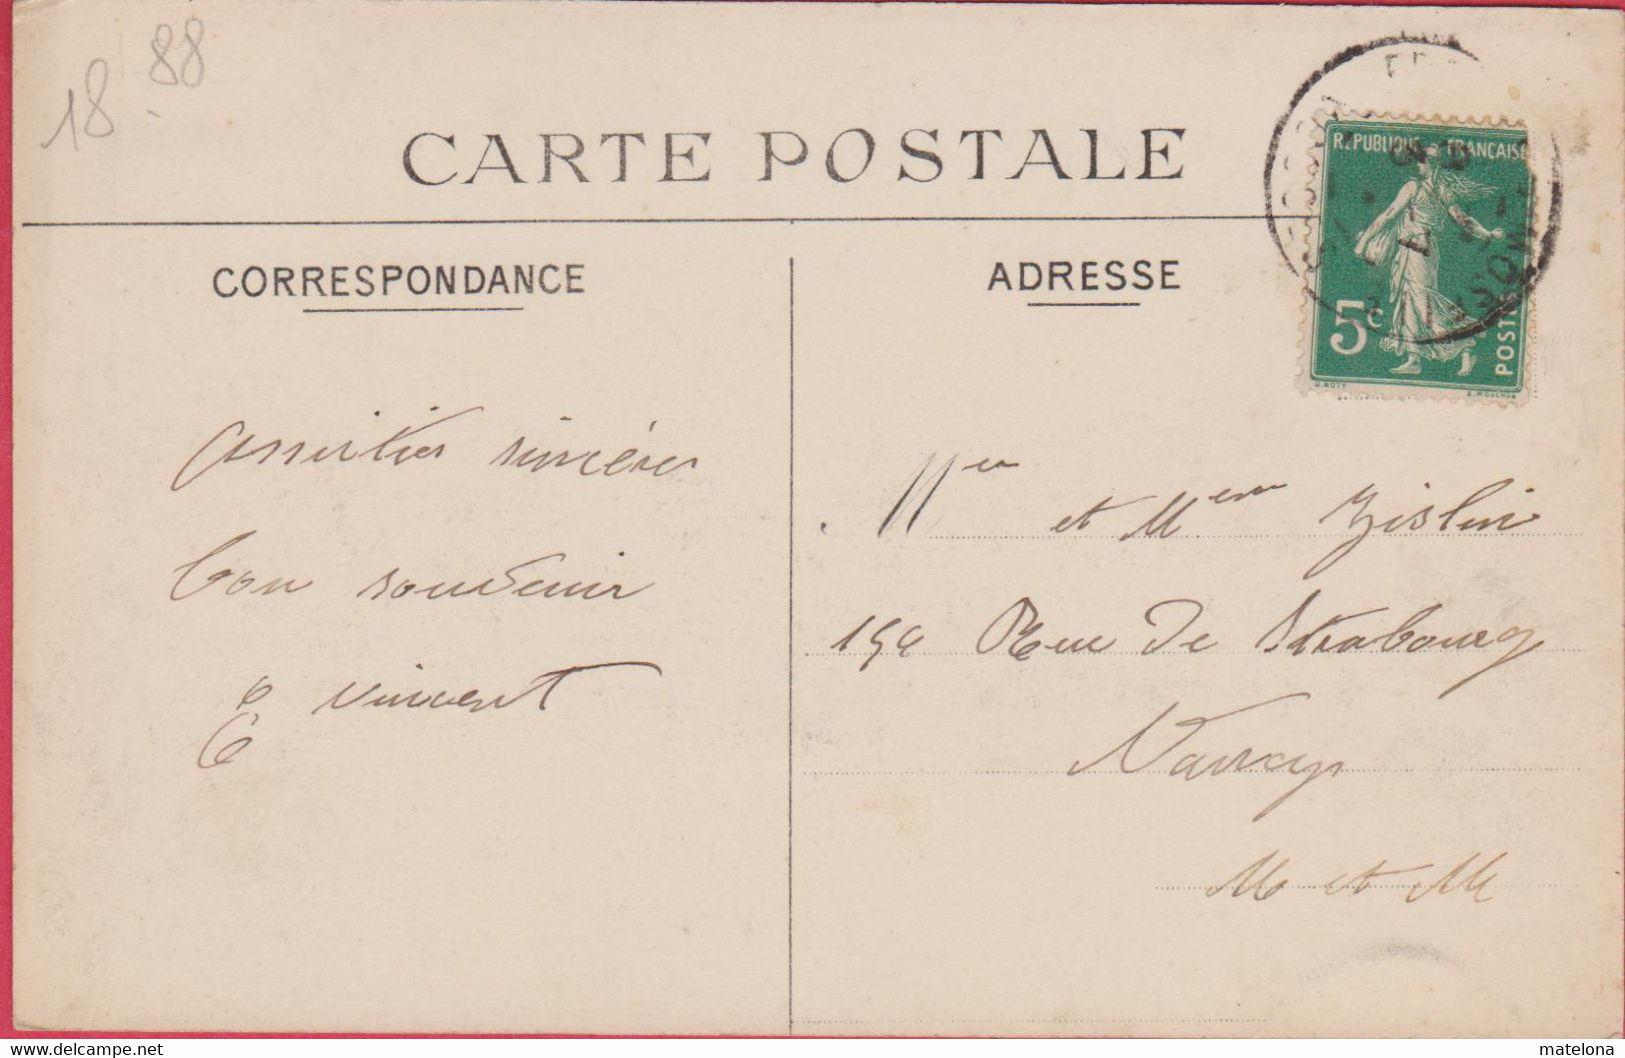 18.88
CARTE POSTALE
CORRESPONDANCE
ADRESSE
REPUBLIQUE FRANÇAISE
5c
POSTES
O. ROTY
E. MOUCHON
Amitiés sincères
bon souvenir
E Vincent
et Mem Zislin
Rue De Strabourg
Nancy
M et M
delcampe.net
matelona